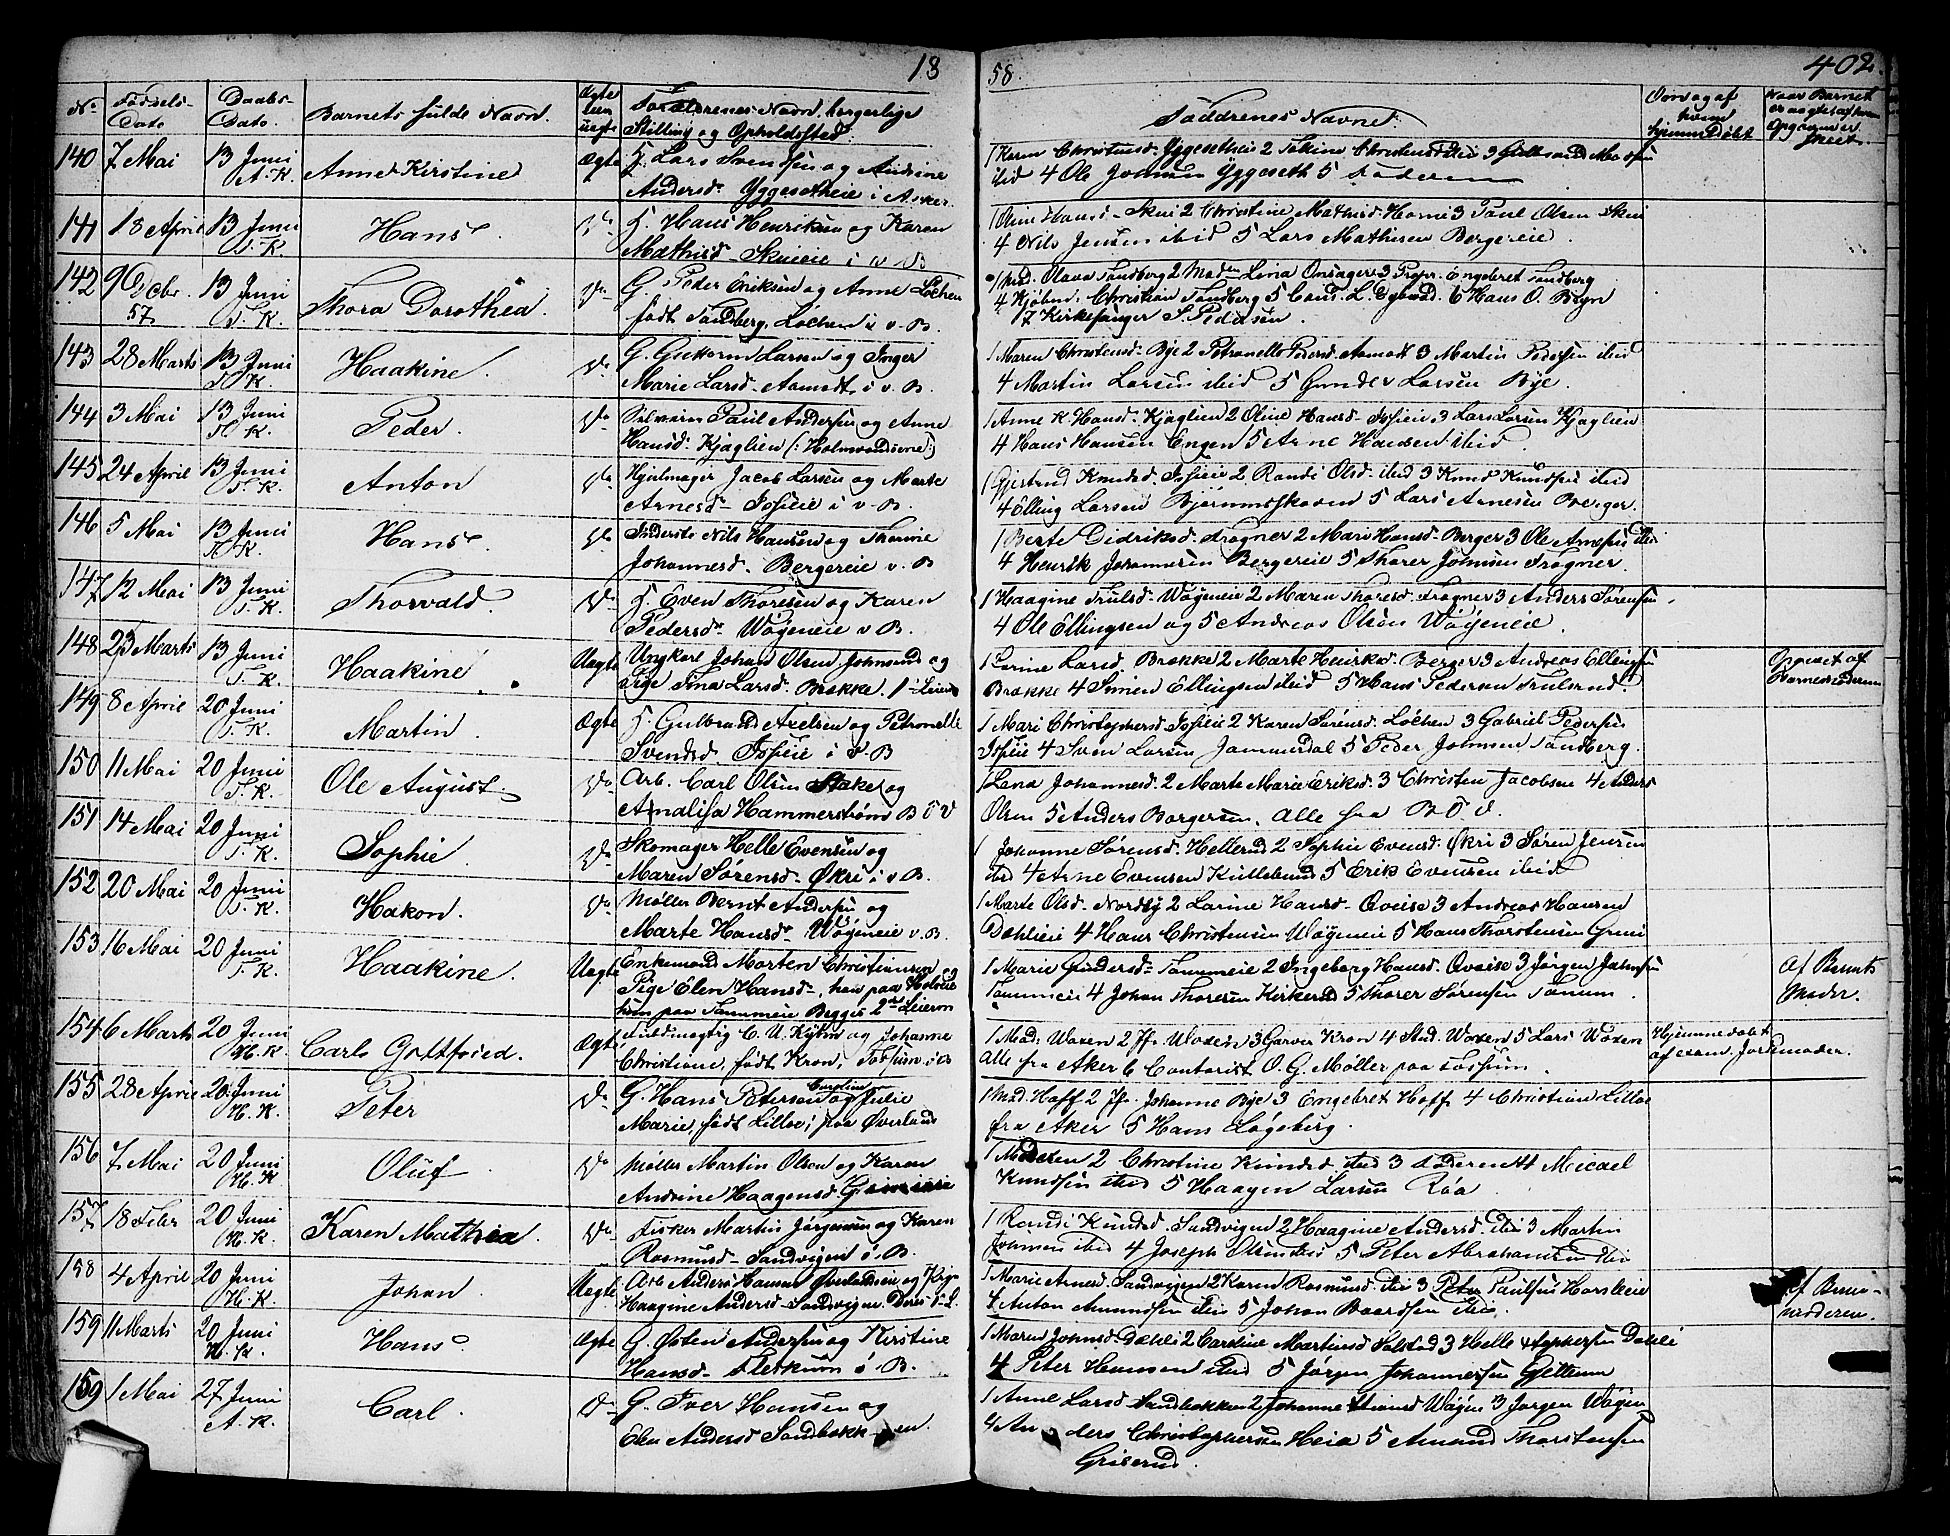 18
58
402.
No
Fødsels-Dato
Daabs-Dato.
Barnets fulde Navn.
Ægte
Forældrenes Navn, borgerlige
Stilling og Opholdssted.
Faddrenes Navne.
Om og af
hvem
hjemmedøbt
140 7 Mai 13 Juni A. K. Anne Kirstine Ægte
G. Lars Svendsen og Andrine
Andersd. Yggesetheie i Asker.
1 Karen Christensd. Yggesetheie 2
ibid 4 Ole Johnsen Yggeseth 5 Faderen
141 18 April 13 Juni T. K. Hans Do
H. Hans Henriksen og Karen
Mathisd. Skuieie i v B
1 Oline Hansd. Skui 2 Christine Mathisd. Horni 3 Paul Olsen Skui
4 Nils Jensen ibid 5 Lars Mathisen Bergereie.
142 9 Octbr. 57. 13 Juni T. K. Thora Dorothea. Do
G. Peder Eriksen og Anne Løchen
født Sandberg. Løchen i v. B.
1 Mad. Olava Sandberg 2 Maden Lina Onsager 3 Propr. Engebret Sandberg
4 Kjøbm. Christian Sandberg 5 6 Hans O. Bryn
7 Kirkesanger S. Pedersen.
143 28 Marts 13 Juni T. K. Haakine. Do
G. Guttorm Larsen og Inger
Marie Larsd. Aamodt i v. B.
1 Maren Christensd. Bye 2 Petronelle Pedersd. Aamodt 3 Martin Pedersen ibid
4 Martin Larsen ibid 5 Gunder Larsen Bye.
144 3 Mai 13 Juni T. K. Peder. Do
Selveier Paul Andersen og Anne
Hansd. Kjaglien
1 Anne K Hansd. Kjaglien 2 Oline Hansd. Jo\u017f\u017feie 3 Lars Larsen Kjaglien
4 Hans Hansen Engen 5 Arne Hansen ibid
145 24 April 13 Juni T. K. Anton Do
Hjulmager Jacob Larsen og Marte
Arnesd. i v. B.
1 Gjertrud Knudsd. 2 Randi Olsd. ibid 3 Knud Knudsen ibid
4 Elling Larsen Bjørumsskoven 5 Lars Arnesen Berger.
146 5 Mai 13 Juni T. K. Hans. Do
Inderste Nils Hansen og Thorine
Johannesd. Bergereie v. B
1 Berte Didriksd. Frogner 2 Mari Hansd. Berger 3 Ole Arnesen ibid
4 Henrik Johannesen Bergereie 5 Thorer Johnsen Frogner.
147 12 Mai 13 Juni T. K. Thorvald. Do
H. Even Thoresen og Karen
Pedersd. Wøyeneie v B.
1 Haagine Trulsd. Wøyeneie 2 Maren Thoresd. Frogner 3 Anders Sørensen
4 Ole Ellingsen og 5 Andreas Olsen Wøyeneie.
148 23 Marts 13 Juni T. K. Haakine Uægte
Ungkarl Johan Olsen Johnsrud og
Pige Lina Larsd. Brøkke. 1ste Leierm
1 Larine Larsd. Brøkke 2 Marte Henriksd. Berger 3 Andreas Ellingsen
Brøkke 4 Simen Ellingsen ibid 5 Hans Pedersen Trulsrud.
Opgivet af
Barnefaderen
149 8 April 20 Juni T. K. Martin. Ægte
H. Gulbrand Axelsen og Petronelle
Svendsd. i V. B
1 Mari Christophersd. 2 Karen Sørensd. Løchen 3 Gabriel Pedersen
4 Sven Larsen Jammerdal 5 Peder Johnsen Sandberg.
150 11 Mai 20 Juni T. K. Ole August. Do
Arb. Carl Olsen Stake og
Annalisa Hammerstrøm B Ø V
1 Lena Johannesd. 2 Marte Marie Eriksd. 3 Christen Jacobsen 4 Anders
Olsen 5 Anders Borgersen. Alle fra B Ø V.
151 14 Mai 20 Juni T. K. Sophie. Do
Skomager Helle Evensen og
Maren Sørensd. Økri i v. B.
1 Johanne Sørensd. Hellerud 2 Sophie Evensd. Økri 3 Søren Jensen
ibid 4 Arne Evensen Kullebund 5 Erik Evensen ibid
152 20 Mai 20 Juni T. K. Hakon. Do
Møller Bernt Andersen og
Marte Hansd. Wøyeneie v. B.
1 Marte Olsd. Nordby 2 Larine Hansd. Qveise 3 Andreas Hansen
Dæhlieie 4 Hans Christensen Wøyeneie 5 Hans Thorstensen Grini
153 16 Mai 20 Juni T. K. Haakine. Uægt.
Enkemand Morten Christiansen og
Pige Elen Hansd., han paa
hun paa Tanumeie Begges 2det Leierm
1 Marie Gundersd. Tanumeie 2 Ingeborg Hansd. Qveise 3 Jørgen Johnsen
Tanumeie 4 Johan Thoresen Kirkerud 5 Thorer Sørensen Tanum.
Af Barnets
Moder.
154 6 Marts 20 Juni H. K. Carl Gottfried. Ægte
Fuldmægtig C. U. Kyhn og Johanne
Christiane, født Kron, Fossum i B
1 Mad. Woxen 2 Jfr. Woxen 3 Garver Kron 4 Stud. Woxen 5 Lars Woxen
Alle fra Aker 6 Contorist O. G. Møller paa Fossum.
Hjemmedøbt
af exam. Jordmoder.
155 28 April 20 Juni H. K. Peter Do
G. Hans Petersen og Caroline Julie
Marie, født Lilloe, paa Øverland
1 Mad. Hoff 2 Jfr. Johanne Bye 3 Engebret Hoff 4 Christian Lilloe
fra Aker 5 Hans Løgeberg.
156 7 Mai 20 Juni H. K Oluf Do
Møller Martin Olsen og Karen
Andrine Haagensd. Grinieie
1 Moderen 2 Christine Knudsd. ibid 3 Faderen 4 Micael
Knudsen ibid 5 Haagen Larsen Røa.
157 18 Febr 20 Juni H. K. Karen Mathea. Do
Fisker Martin Jørgensen og Karen
Rasmusd. Sandvigen i B.
1 Randi Knudsd. Sandvigen 2 Haagine Andersd. ibid 3 Martin
Johnsen ibid 4 Joseph Olsen ibid 5 Peter Abrahamsen ibid
158 4 April 20 Juni H. K. Johan. Uægte
Arb. Anders Hansen Øverlandseie og
Haagine Andersd. Sandvigen.
1 Marie Arnesd. Sandvigen 2 Karen Rasmusd. ibid 3 Peter Paulsen Horsleeie
4 Anton Amundsen ibid 5 Johan Baardsen ibid.
Af Barne-
moderen.
159 11 Marts 20 Juni H. K. Hans. Ægte
G. Østen Andersen og Kirstine
Hansd. Fleskum i B.
1 Maren Johnsd. Dæhli 2 Caroline Martinsd. 3 Helle Dæhli
4 Peter Hansen ibid 5 Jørgen Johannessen Gjettum
159 1 Mai 27 Juni A. K. Carl. Do
G. Iver Hansen og
Elen Andersd Sandbakken.
1 Anne Larsd. Sandbakken 2 Johanne Wøyen 3 Jørgen Wøyen
4 Anders Christophersen Heia 5 Amund Thorstensen
Griserud.